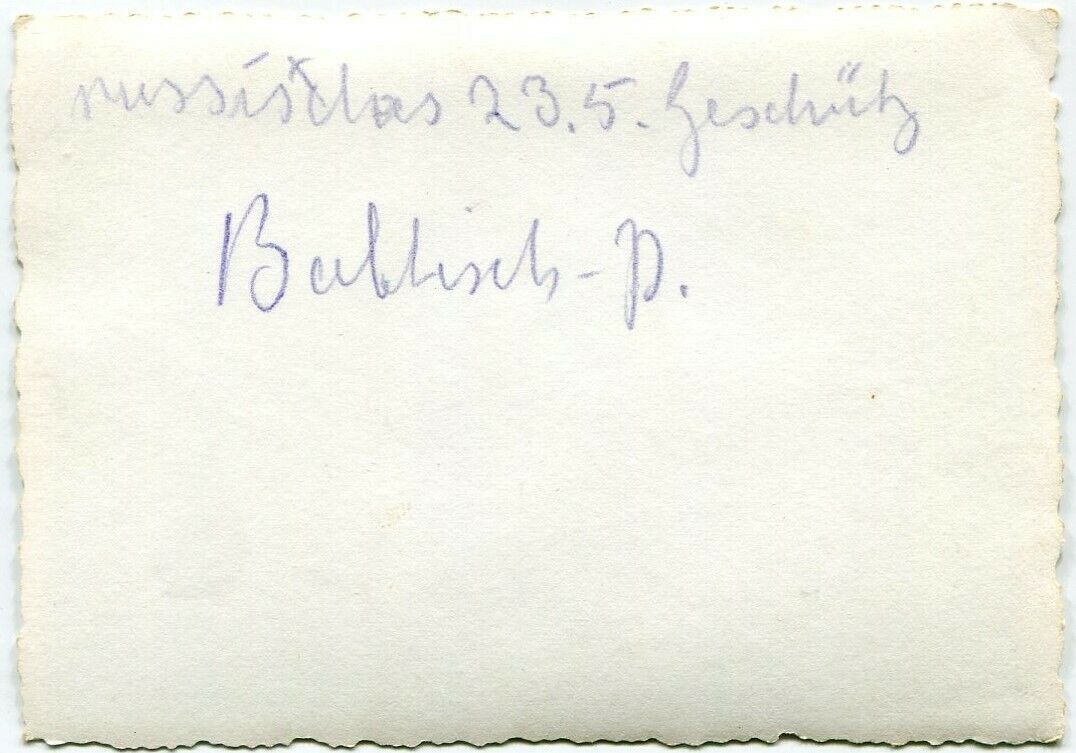 russisches 23.5. Geschütz
Baltisch-P.